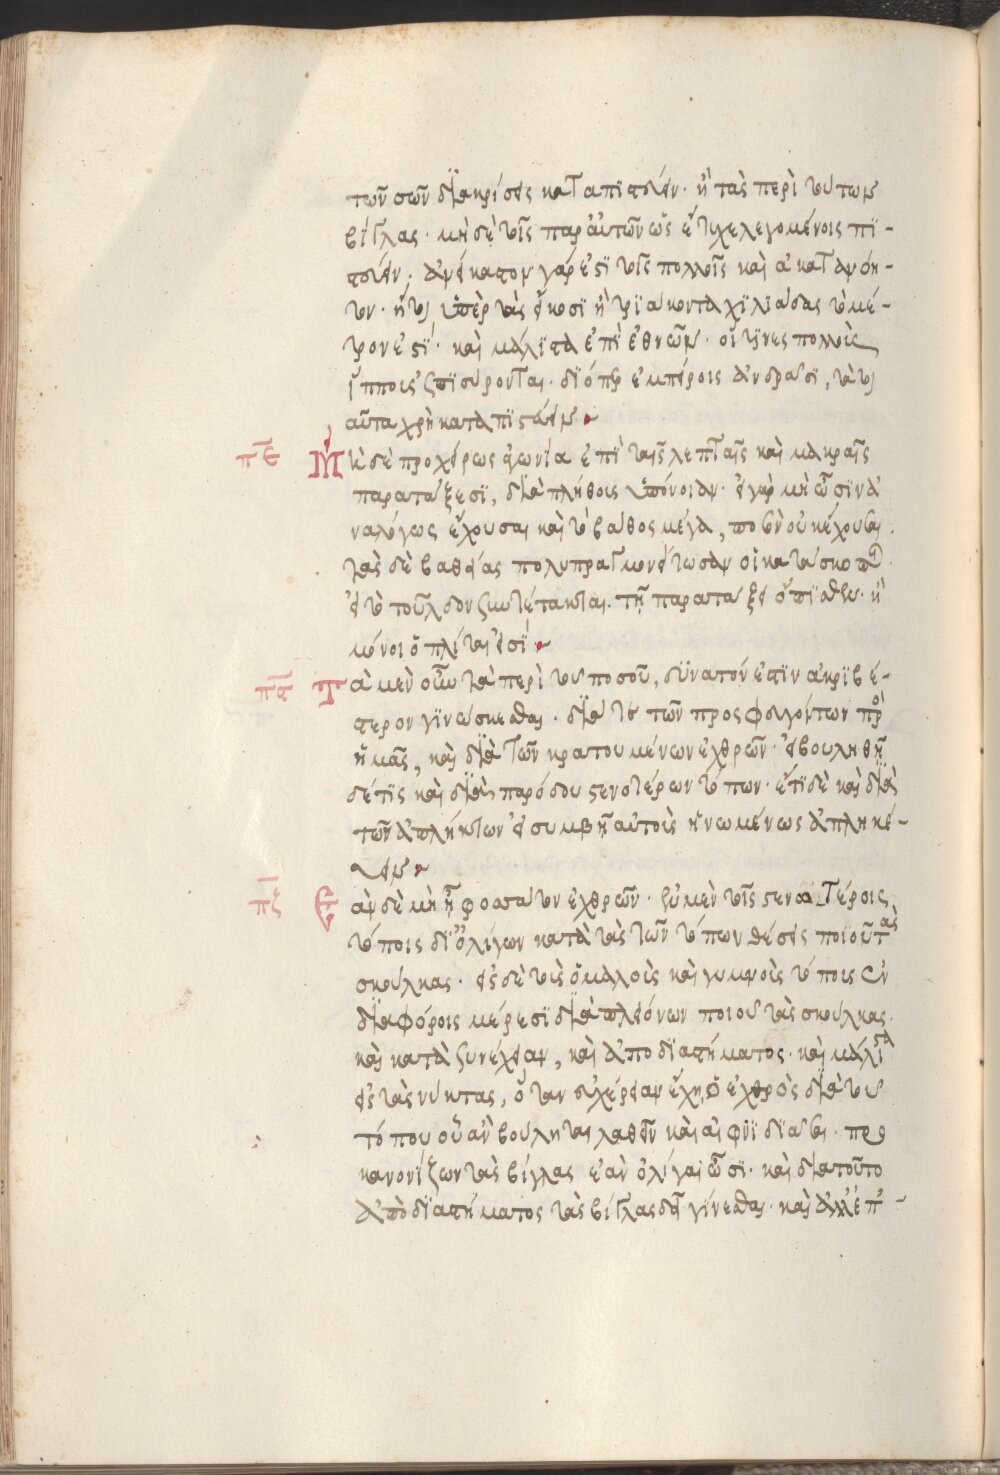 τῶν σῶν διακρίσεις καταπιστεύειν· ἢ τὰς περὶ τούτων
βίγλας· μὴ δὲ τοῖς παρ' αὐτῶν ὡς ἔτυχε λεγομένοις πι-
στεύειν· ἀνείκαστον γάρ ἐστι τοῖς πολλοῖς καὶ ἀκατανόη-
τον· ἤτοι ὑπὲρ τὰς εἴκοσι ἢ τριάκοντα χιλιάδας τὸ μέ-
τρον ἐστί· καὶ μάλιστα ἐπὶ ἐθνῶν· οἵτινες πολλοῖς
ἵπποις ἐπισύρονται· διόπερ ἐμπείροις ἀνδράσι, τὰ τοι
αῦτα χρὴ καταπιστεύειν
πε Μὴ δὲ προχείρως ἀγωνία ἐπὶ ταῖς λεπταῖς καὶ μακραῖς
παρατάξεσι, διὰ πλήθους ὑπόνοιαν· εἰ γὰρ μὴ ὦσιν ἀ
ναλόγως ἔχουσαι καὶ τὸ βάθος μέγα, ποσὸν οὐκ ἔχουσι·
τὰς δὲ βαθείας πολυπραγμονείτωσαν οἱ κατάσκοποι·
εἰ τὸ τοῦλδον συντέτακται τῇ παρατάξει ὄπισθεν· ἢ
μόνοι ὁπλῖται εἰσί
πϛ Τὰ μὲν οὖν τὰ περὶ τοῦ ποσοῦ, δυνατόν ἐστιν ἀκριβέ-
στερον γινώσκεσθαι· διά τε τῶν προσφευγόντων πρὸς
ἡμᾶς, καὶ διὰ τῶν κρατουμένων ἐχθρῶν· εἰ βουληθῇ
δέ τις καὶ διὰ παρόδου στενοτέρων τόπων· ἔτι δὲ καὶ διὰ
τῶν ἀπλήκτων εἰ συμβῇ αὐτοὺς ἡνωμένως ἀπληκέ-
υειν
πζ Ἐὰν δὲ μὴ ᾖ φοσσάτον ἐχθρῶν· ἐν μὲν τοῖς στενοτέροις
τόποις δι' ὀλίγων κατὰ τὰς τῶν τόπων θέσεις ποιοῦ τὰς
σκούλκας· εἰς δὲ τοὺς ὁμαλοὺς καὶ γυμνοὺς τόπους ἐν
διαφόροις μέρεσι διὰ πλειόνων ποιοῦ τὰς σκούλκας·
καὶ κατὰ συνέχειαν, καὶ ἀπὸ διαστήματος· καὶ μάλιστα
εἰς τὰς νύκτας, ὅταν εὐχέρειαν ἔχῃ ὁ ἐχθρὸς διὰ τοῦ
τόπου οὗ ἂν βούληται λαθεῖν καὶ αἰφνιδιάσαι· περ
κανονίζων τὰς βίγλας ἐὰν ὀλίγαι ὦσι· καὶ διὰ τοῦτο
ἀπὸ διαστήματος τὰς βίγλας δεῖ γίνεσθαι· καὶ ἀλλεπ-